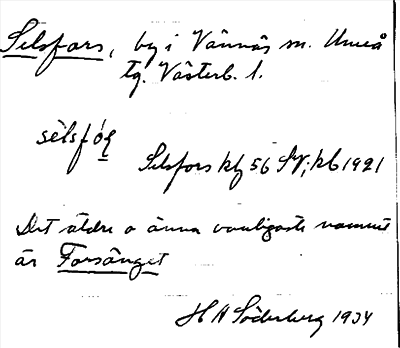 Selsfors, by i Vännäs sn. Umeå
tg. Västerb. l.
sèlsfóʂ
Selsfors kbl 56 SV; kb 1921
Det äldre o ännu vanligaste namnet
är Forsänget
H A Söderberg 1934